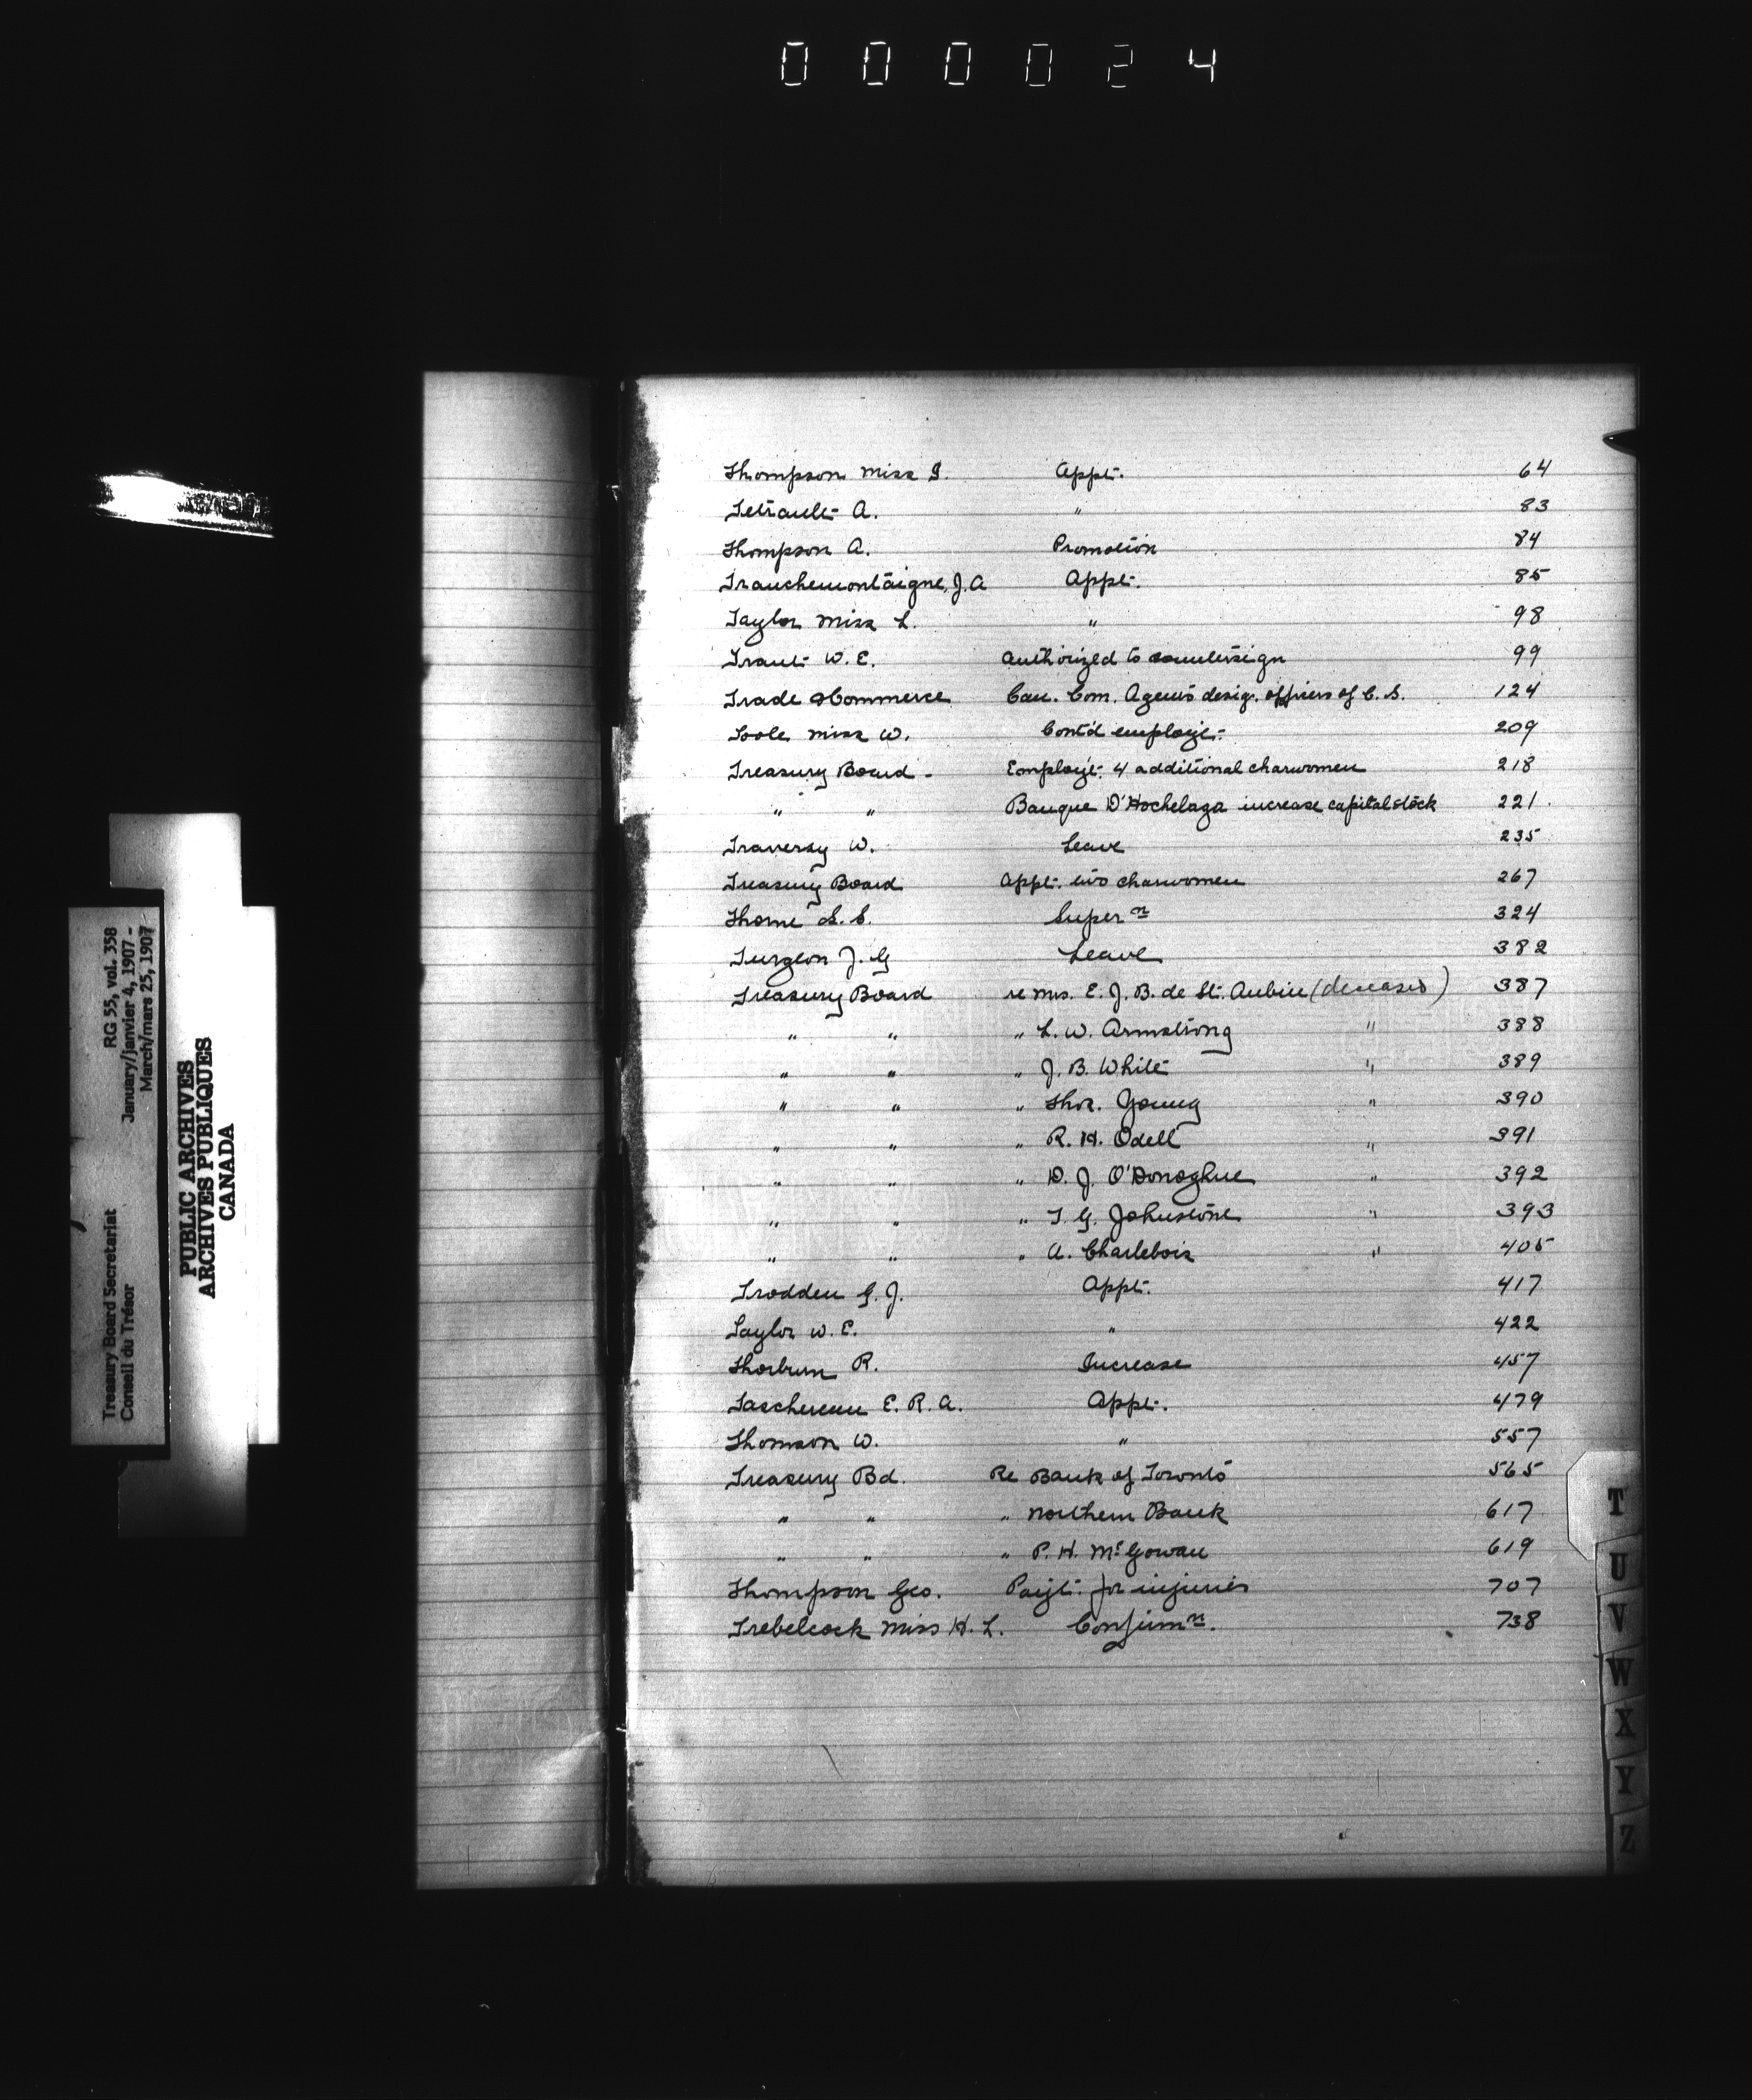 0 0 0 0 2 4
Thompson Miss G. Appt. 64
Tetrault A. " 83
Thompson A. Promotion 84
Tranchemontaigne, J. A Appt. 85
Taylor Miss L. " 98
Traut W. E. Authorized to countersign 99
Trade & Commerce Can. Com. Agents desig. officers of C. S. 124
Toole Miss W. Cont'd employt. 209
Treasury Board - Employt. 4 additional charwomen 218
" " Banque D'Hochelaga increase capital stock 221
Traversy W. Leave 235
Treasury Board Appt. two charwomen 267
Thorne S. C. Super n 324
Turgeon J. G Leave 382
Treasury Board re Mrs. E. J. B. de St. Aubin (deceased) 387
" " " L. W. Armstrong " 388
" " " J. B. White " 389
" " " Thos. Young " 390
" " " R. H. Odell " 391
" " " D. J. O'Donoghue " 392
" " " T. G. Johnstone " 393
" " " A. Charlebois " 405
Trodden G. J. Appt. 417
Taylor W. E. " 422
Thorburn R. Increase 457
Taschereau E. R. A. Appt. 479
Thomson W. " 557
Treasury Bd. Re Bank of Toronto 565
" " " Northern Bank 617
" " " P. H. McGowan 619
Thompson Geo. Payt. for injuries 707
Trebelcock Miss H. L. Confirm n. 738
T
U
V
W
X
Y
Z
Treasury Board Secretariat RG 55, vol. 358
Conseil du Trésor January/janvier 4, 1907 -
March/mars 25, 1907
PUBLIC ARCHIVES
ARCHIVES PUBLIQUES
CANADA